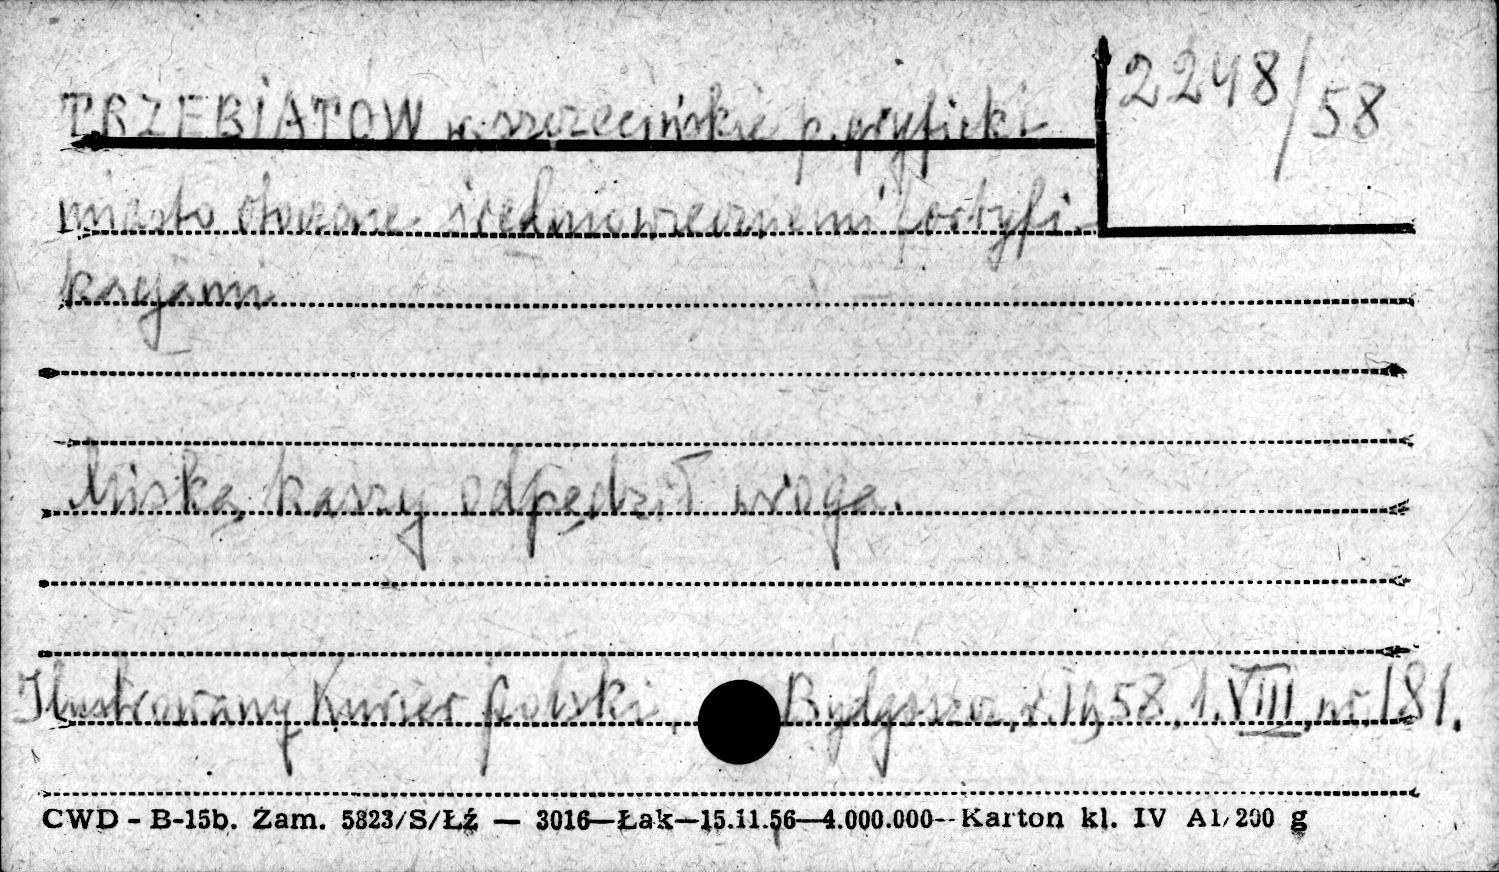 2248/58
TRZEBIATOW w. szczecińskie p. gryficki
miasto otoczone średniowiecznemi fortyfi-
kacjami
Miską kaszy odpędził wroga.
Ilustrowany Kurier polski, Bydgoszcz, r. 1958, 1. VIII, nr. 181.
CWD - B-15b. Zam. 5823/S/Łź — 3016—Łak—15.11.56—4.000.000--Karton kl. IV A1/200 g